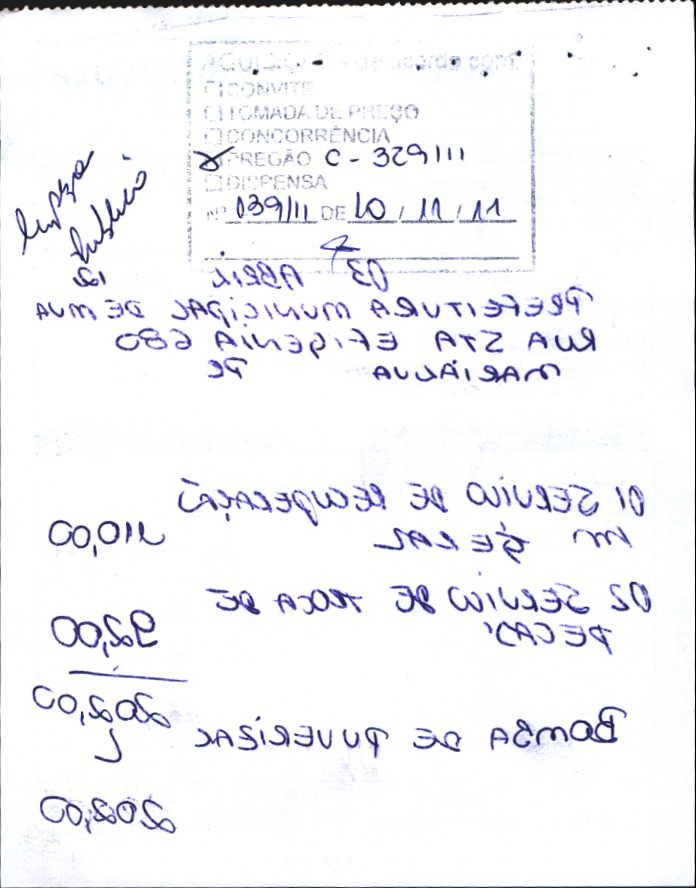 AQUISIÇÃO de acordo com:
CONVITE
TOMADA DE PREÇO
CONCORRÊNCIA
PREGÃO C - 329/11
DISPENSA
Nº 039/11 DE 10 / 11 / 11
Limpeza
Publica
03 ABRIL 12
PREFEITURA MUNICIPAL DE MVA
RUA STA EFIGENIA 680
MARIALVA PR
01 SERVIÇO DE RECUPERAÇÃO
EM GERAL 110,00
02 SERVIÇO DE TROCA DE
PECAS 92,00
202,00
BOMBA DE PUVERIZAR
202,00